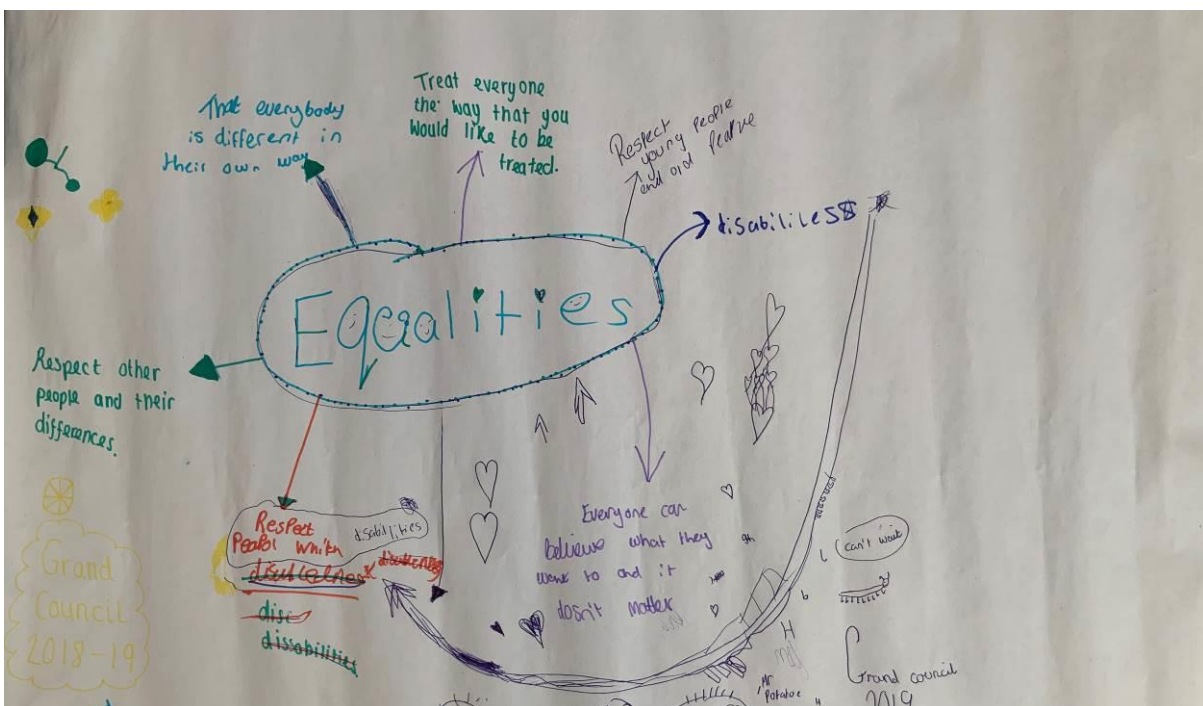 That everybody
is different in
their own way
Treat everyone
the way that you
would like to be
treated.
Respect
young people
and old
disabilities
Equalities
Respect other
people and their
differences.
Respect
Peapol which
disabilities
disc
dissabilities
Everyone can
believe what they
want to and it
dosn't matter
can't wait
Grand
Council
2018-19
Grand council
2019
Mr
Potatoe